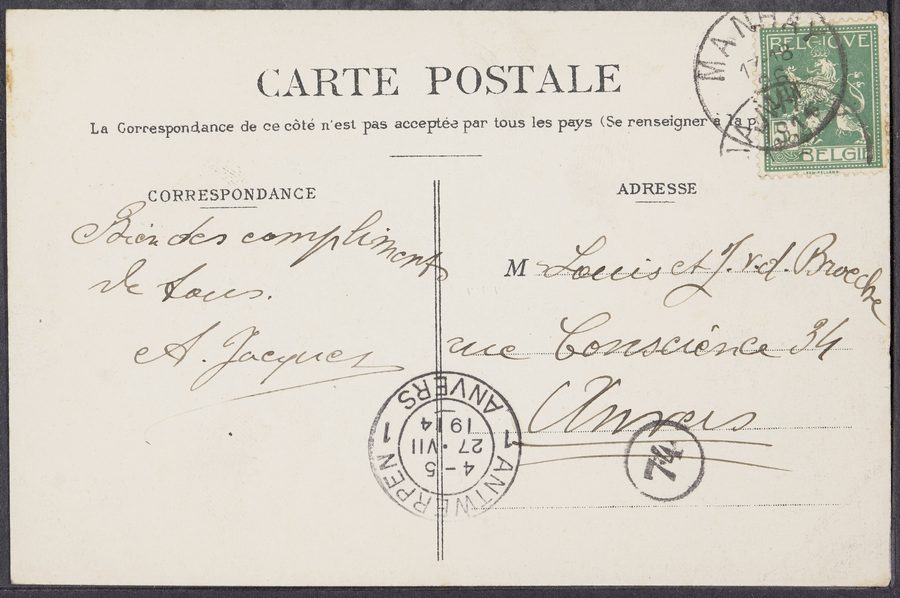 CARTE POSTALE
La Correspondance de ce côté n'est pas acceptée par tous les pays (Se renseigner à la p
CORRESPONDANCE
Bien des compliments
de tous.
A. Jacques
ADRESSE
M Louis et J. v.d. Broecke
rue Conscience 34
Anvers
BELGIQUE
BELGIË
MANHAY
ANTWERPEN 1
4-5
27·VII
1914
1 ANVERS
74